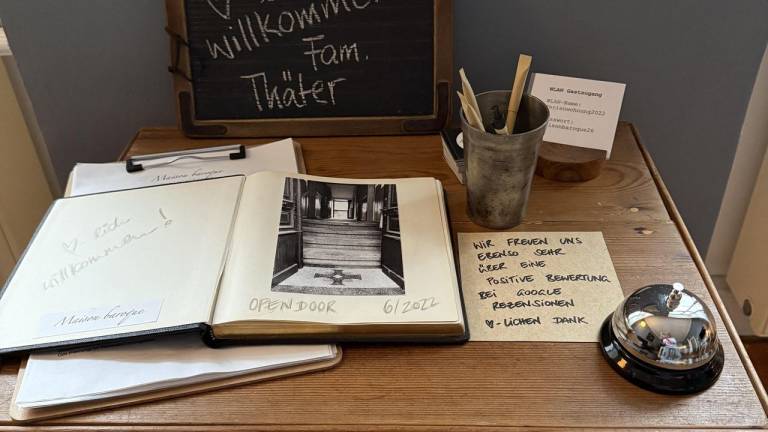 willkommen
Fam.
Thäter
WLAN Gastzugang
WLAN-Name:
Maison baroque
♡-lich
willkommen!
Maison baroque
OPENDOOR 6/2022
WIR FREUEN UNS
EBENSO SEHR
ÜBER EINE
POSITIVE BEWERTUNG
BEI GOOGLE
REZENSIONEN
♥-LICHEN DANK